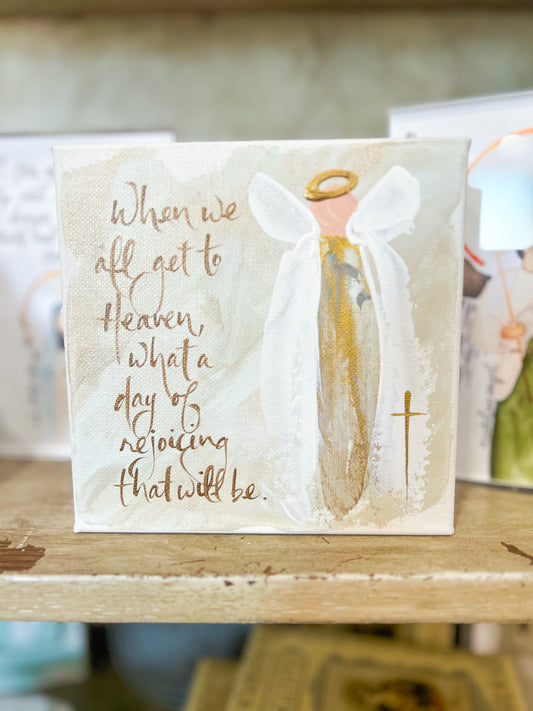 When we
all get to
Heaven,
what a
day of
rejoicing
that will be.